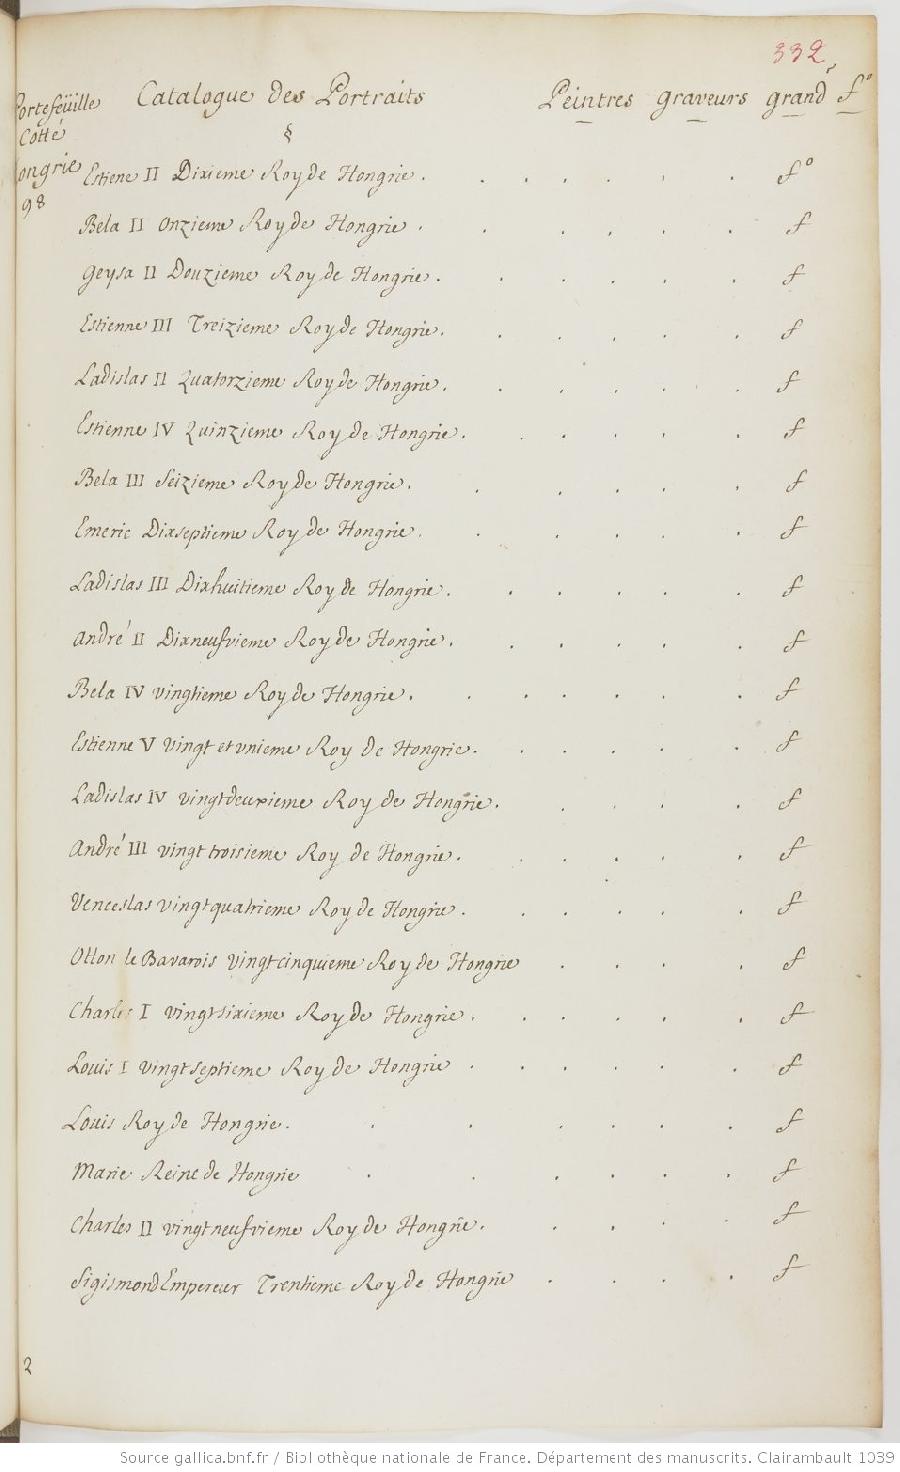 332
Portefeüille
Cotté
hongrie
98
Catalogue des Portraits Peintres graveurs grandr fo
§
Estiene II Dixieme Roy de Hongrie. fo
Bela II Onzieme Roy de Hongrie. f
Geysa II Douzieme Roy de Hongrie. f
Estienne III Treizieme Roy de Hongrie. f
Ladislas II Quatorzieme Roy de Hongrie. f
Estienne IV Quinzieme Roy de Hongrie. f
Bela III Seizieme Roy de Hongrie. f
Emeric Dixseptieme Roy de Hongrie. f
Ladislas III Dixhuitieme Roy de Hongrie. f
André II Dixneufvieme Roy de Hongrie. f
Bela IV vingtieme Roy de Hongrie. f
Estienne V vingt et unieme Roy de Hongrie. f
Ladislas IV vingtdeuxieme Roy de Hongrie. f
André III vingt troisieme Roy de Hongrie. f
Venceslas vingtquatrieme Roy de Hongrie. f
Otton le Bavarois vingtcinquieme Roy de Hongrie f
Charles I vingtsixieme Roy de Hongrie. f
Louis I vingtseptieme Roy de Hongrie f
Louis Roy de Hongrie. f
Marie Reine de Hongrie f
Charles II vingtneufvieme Roy de Hongrie. f
Sigismond Empereur Trentieme Roy de Hongrie f
2
Source gallica.bnf.fr / Bibliothèque nationale de France. Département des manuscrits. Clairambault 1039